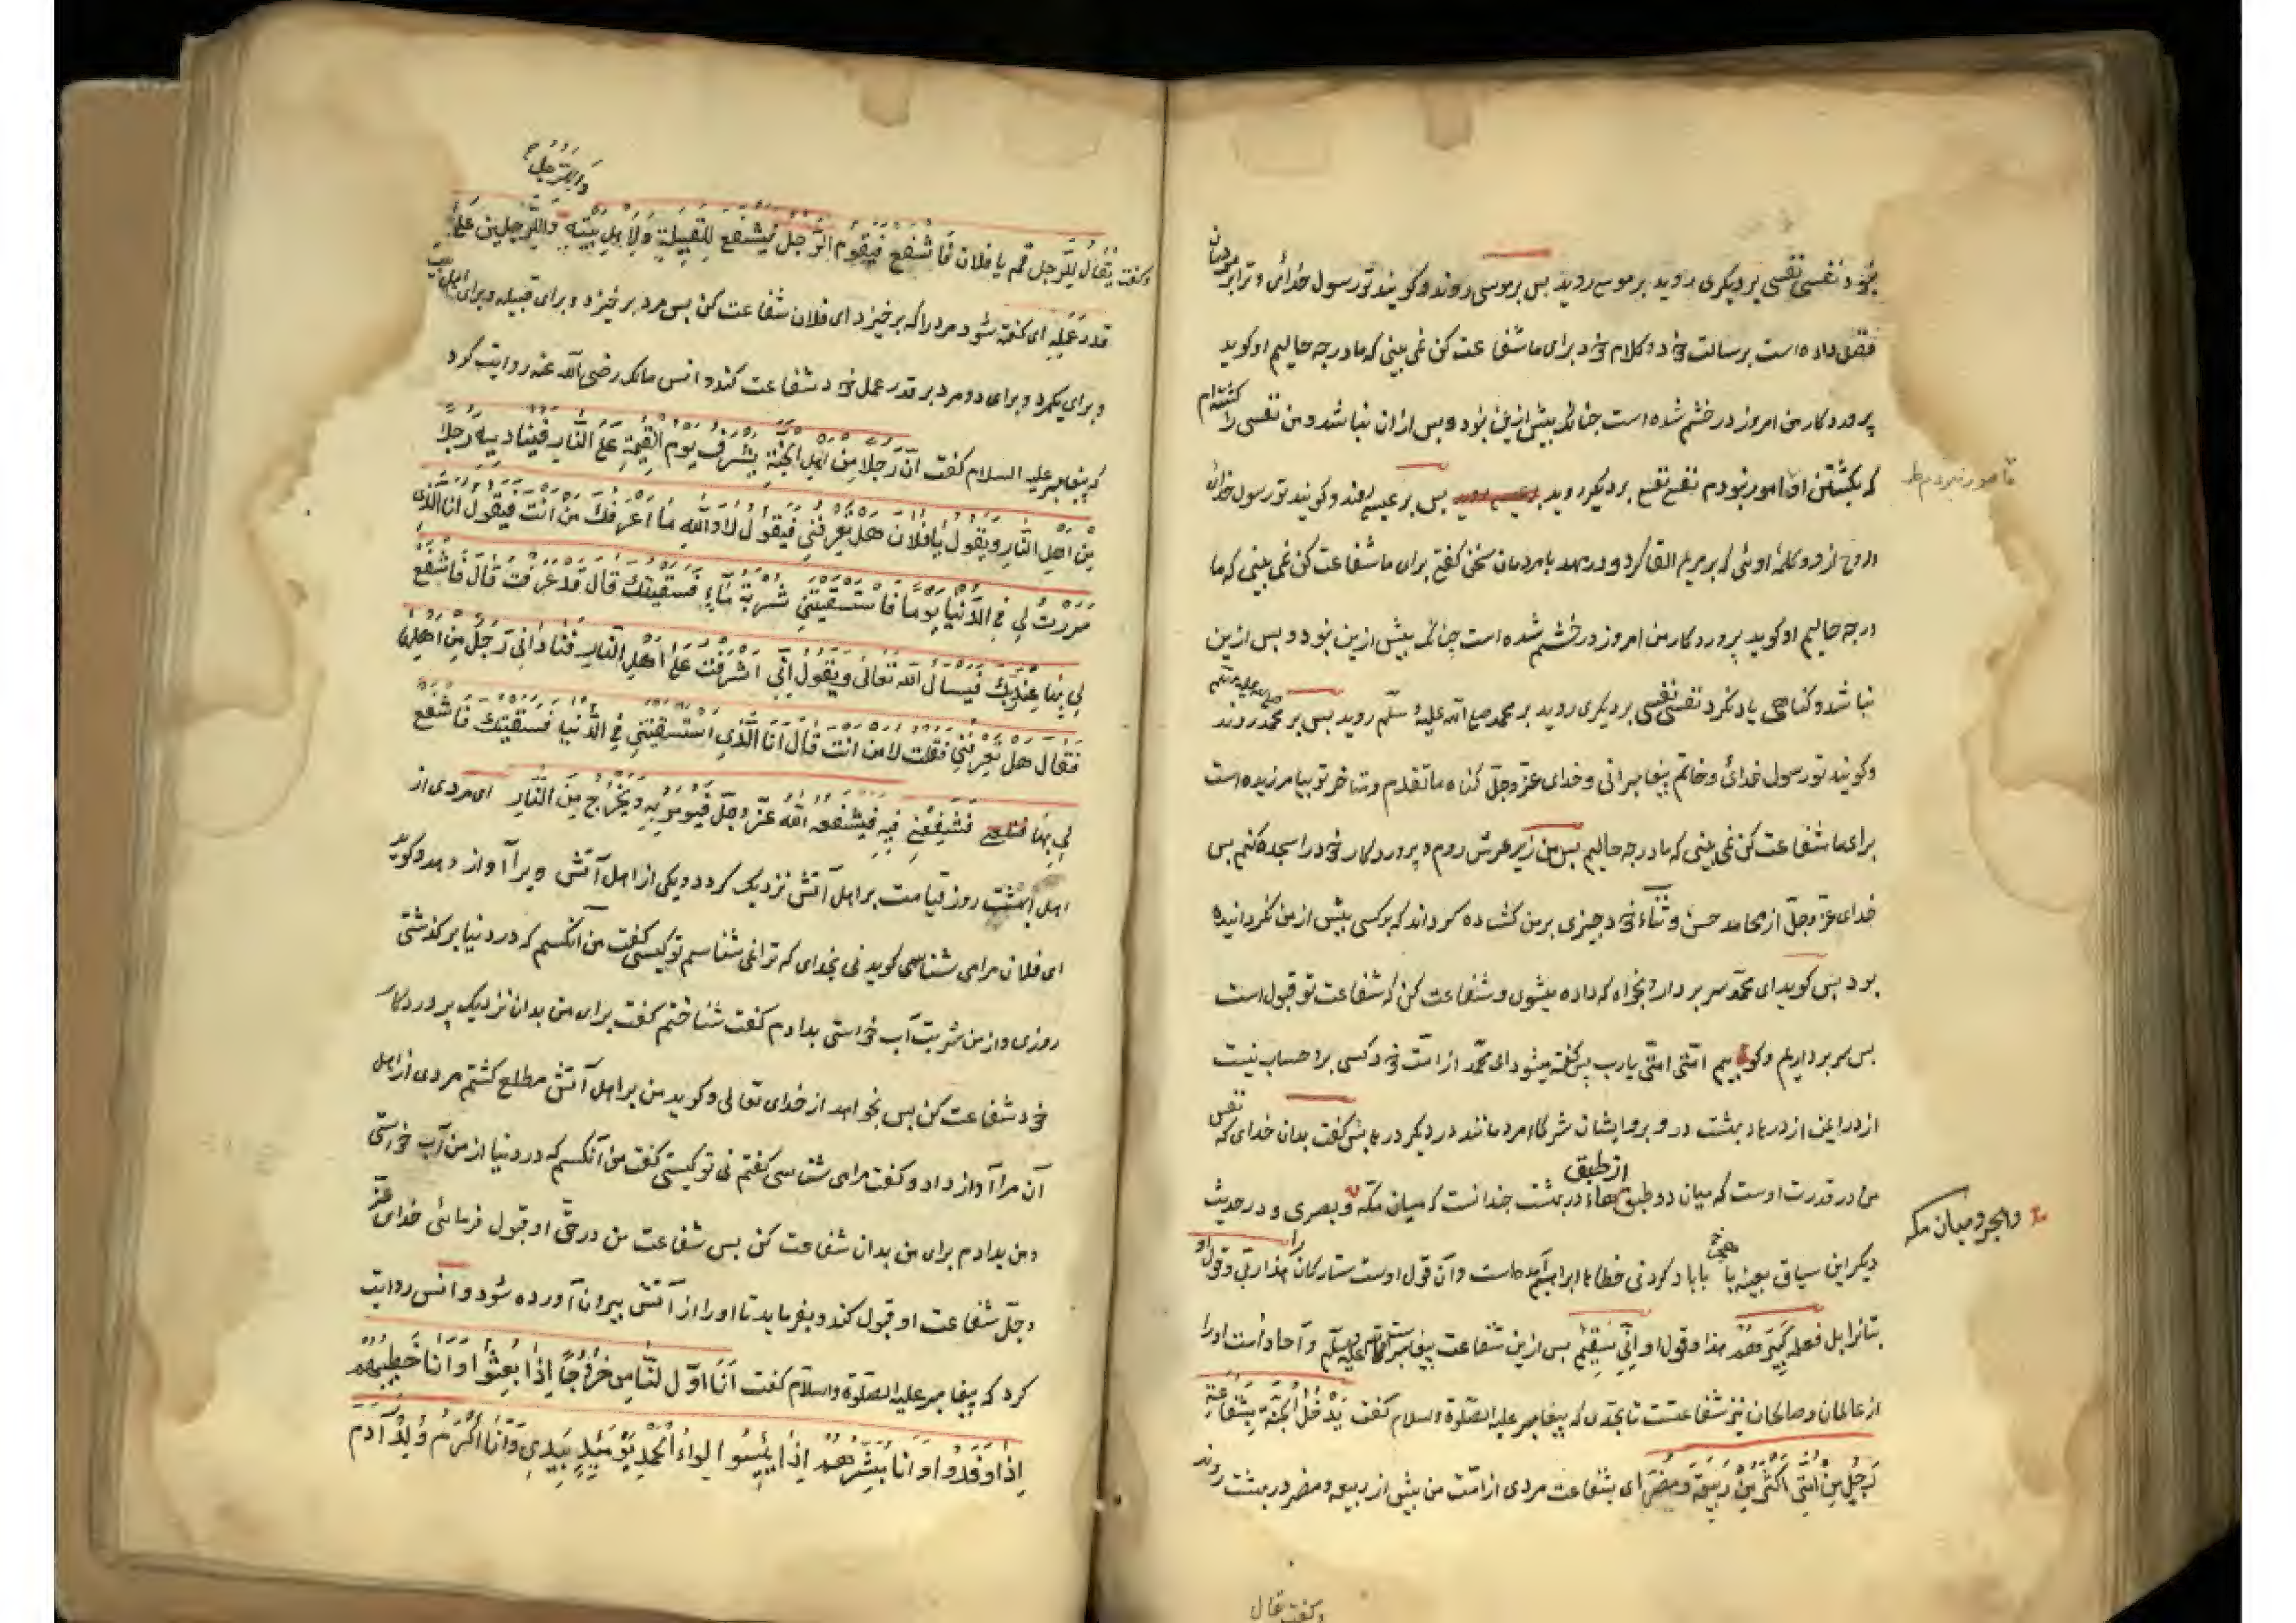 بخود نفسی نفسی بر دیگری روید بر موسی روید بس بر موسی روند و کویند تو رسول خدائی و ترا بر مردمان
فضل داده است برسالت خود و کلام خود برای ما شفاعت کن نمی بینی که ما در چه حالیم او کوید
پروردکار من امروز در خشم شده است چنانکه بیش ازین نبود و بس ازان نباشد و من نفسی را کشته‌ام
که بکشتن او مامور نبودم نفسی نفسی بر دیکر روید بر عیسی روید بس بر عیسی روند و کویند تو رسول خدائی
مامور نبودم ط
و روح ازو و کلمهٔ اوئی که بر مریم القا کرد و در مهد با مردمان سخن کفتی برای ما شفاعت کن نمی بینی که ما
در چه حالیم او کوید پروردکار من امروز در خشم شده است چنانکه بیش ازین نبود و بس ازین
نباشد و کناهی یاد نکرد نفسی نفسی بر دیکری روید بر محمد صلی الله علیه وسلم روید بس بر محمد صلی الله علیه وسلم روند
و کویند تو رسول خدائی و خاتم پیغامبرانی و خدای عزّ وجلّ کناه ما تقدم و ما تاخر تو بیامرزیده است
برای ما شفاعت کن نمی بینی که ما در چه حالیم بس من زیر عرش روم و پروردکار خود را سجده کنم بس
خدای عزّ وجلّ از محامد حسن و ثناء خود چیزی بر من کشاده کرداند که بر کسی بیش از من نکردانیده
بود بس کوید ای محمّد سر بردار و بخواه که داده میشوی و شفاعت کن که شفاعت تو قبول است
بس سر بردارم و کویم امّتی امّتی یا رب بس کفته میشود ای محمّد از امّت خود کسی بر او حساب نیست
از در ایمن از درهاء بهشت در و بر و ایشان شرکاء مردمانند در دیکر درها بس کفت بدان خدای که نفس
من در قدرت اوست که میان دو طبق از طبق هاء در بهشت چندانست که میان مکّه و بصری و در حدیث
و هجر و میان مکه
دیکر این سیاق بعینه با یاد کردن خطاء ابراهیم آمده است و آن قول اوست ستارکان را هذا ربی و قول او
بتانرا بل فعله کبیرهم هذا و قول او انّی سقیم بس ازین شفاعت پیغامبر است صلی الله علیه وسلم و آحاد امّت او را
از عالمان و صالحان نیز شفاعتست تا بحدی که پیغامبر علیه الصلوة والسلام کفت یَدْخُلُ الْجَنَّةَ بِشَفَاعَةِ
رَجُلٍ مِنْ اُمَّتِی اَکْثَرُ مِنْ رَبِیعَةَ وَمُضَرَ ای بشفاعت مردی از امّت من بیش از ربیعه و مضر در بهشت روند
و کفت یقال
وَلِلرَّجُلِ
و کفت یُقَالُ لِلرَّجُلِ قُمْ یا فلان فَاشْفَعْ فَیَقُومُ الرَّجُلُ فَیَشْفَعُ لِلْقَبِیلَةِ وَلِاَهْلِ بَیْتِهِ وَلِلرَّجُلَیْنِ عَلَی
قَدْرِ عَمَلِهِ ای کفته شود مرد را که برخیز ای فلان شفاعت کن بس مرد برخیزد و برای قبیله و برای اهل بیت
و برای یکمرد و برای دو مرد بر قدر عمل خود شفاعت کند و انس مالک رضی الله عنه روایت کرد
که پیغامبر علیه السلام کفت اَنَّ رَجُلاً مِنْ اَهْلِ الْجَنَّةِ یُشْرِفُ یَوْمَ الْقِیٰمَةِ عَلَی النَّارِ فَیُنَادِیهِ رَجُلاً
مِنْ اَهْلِ النَّارِ وَیَقُولُ یَا فُلَانُ هَلْ تَعْرِفُنِی فَیَقُولُ لَا وَاللهِ مَا اَعْرِفُکَ مَنْ اَنْتَ فَیَقُولُ اَنَا الَّذِی
مَرَرْتَ لِی فِی الدُّنْیَا یَوْماً فَاسْتَسْقَیْتَنِی شَرْبَةَ مَاءٍ فَسَقَیْتُکَ قَالَ قَدْ عَرَفْتُ قَالَ فَاشْفَعْ
لِی بِهَا عِنْدَ رَبِّکَ فَیَسْاَلُ اللهَ تَعَالَی وَیَقُولُ اِنِّی اَشْرَفْتُ عَلَی اَهْلِ النَّارِ فَنَادَانِی رَجُلٌ مِنْ اَهْلِهَا
فَقَالَ هَلْ تَعْرِفُنِی فَقُلْتُ لَا مَنْ اَنْتَ قَالَ اَنَا الَّذِی اسْتَسْقَیْتَنِی فِی الدُّنْیَا فَسَقَیْتُکَ فَاشْفَعْ
لِی بِهَا فَشَفِّعْنِی فِیهِ فَیُشَفِّعُهُ اللهُ عَزَّ وَجَلَّ فَیُؤْمَرُ بِهِ وَیُخْرَجُ مِنَ النَّارِ ای مردی از
اهل بهشت روز قیامت بر اهل آتش نزدیک کردد و یکی از اهل آتش ویرا آواز دهد و کوید
ای فلان مرا می شناسی کوید نی بخدای که ترا نمی شناسم تو کیستی کفت من آنکسم که در دنیا بر کذشتی
روزی و از من شربت آب خواستی بدادم کفت شناختم کفت برای من بدان نزدیک پروردکار
خود شفاعت کن بس بخواهد از خدای تعالی و کوید من بر اهل آتش مطلع کشتم مردی از اهل
آن مرا آواز داد و کفت مرا می شناسی کفتم نی تو کیستی کفت من آنکسم که در دنیا از من آب خواستی
و من بدادم برای من بدان شفاعت کن بس شفاعت من در حقّ او قبول فرمائی خدای عزّ
وجلّ شفاعت او قبول کند و بفرماید تا او را از آتش بیرون آورده شود و انس روایت
کرد که پیغامبر علیه الصلوة والسلام کفت اَنَا اَوَّلُ النَّاسِ خُرُوجاً اِذَا بُعِثُوا وَاَنَا خَطِیبُهُمْ
اِذَا وَفَدُوا وَاَنَا مُبَشِّرُهُمْ اِذَا یَئِسُوا لِوَاءُ الْحَمْدِ یَوْمَئِذٍ بِیَدِی وَاَنَا اَکْرَمُ وُلْدِ آدَمَ